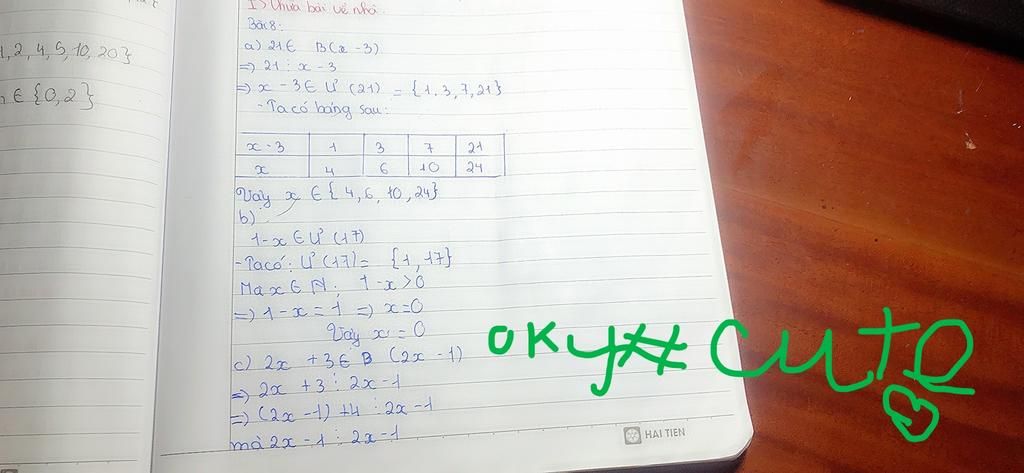 1, 2, 4, 5, 10, 20}
∈ {0, 2}
I > Chữa bài về nhà.
Bài 8:
a) 21 ∈ B(x - 3)
=> 21 ⋮ x - 3
=> x - 3 ∈ Ư (21) = {1, 3, 7, 21}
- Ta có bảng sau:
x - 3 1 3 7 21
x 4 6 10 24
Vậy x ∈ { 4, 6, 10, 24}
b)
1 - x ∈ Ư (17)
- Ta có: Ư (17) = {1, 17}
Mà x ∈ N; 1 - x > 0
=> 1 - x = 1 => x = 0
Vậy x = 0
c) 2x + 3 ∈ B (2x - 1)
=> 2x + 3 ⋮ 2x - 1
=> (2x - 1) + 4 ⋮ 2x - 1
mà 2x - 1 ⋮ 2x - 1
HẢI TIẾN
OKY## CUTE